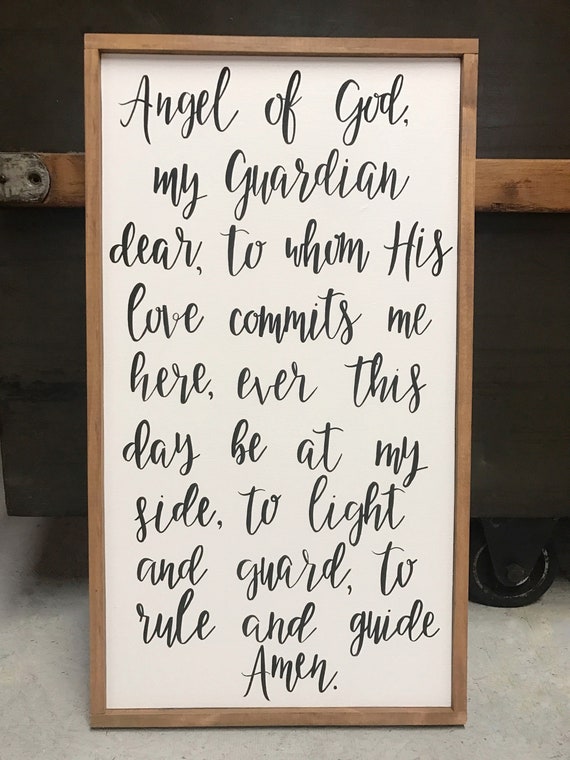 Angel of God,
my Guardian
dear, to whom His
love commits me
here, ever this
day be at my
side, to light
and guard, to
rule and guide
Amen.